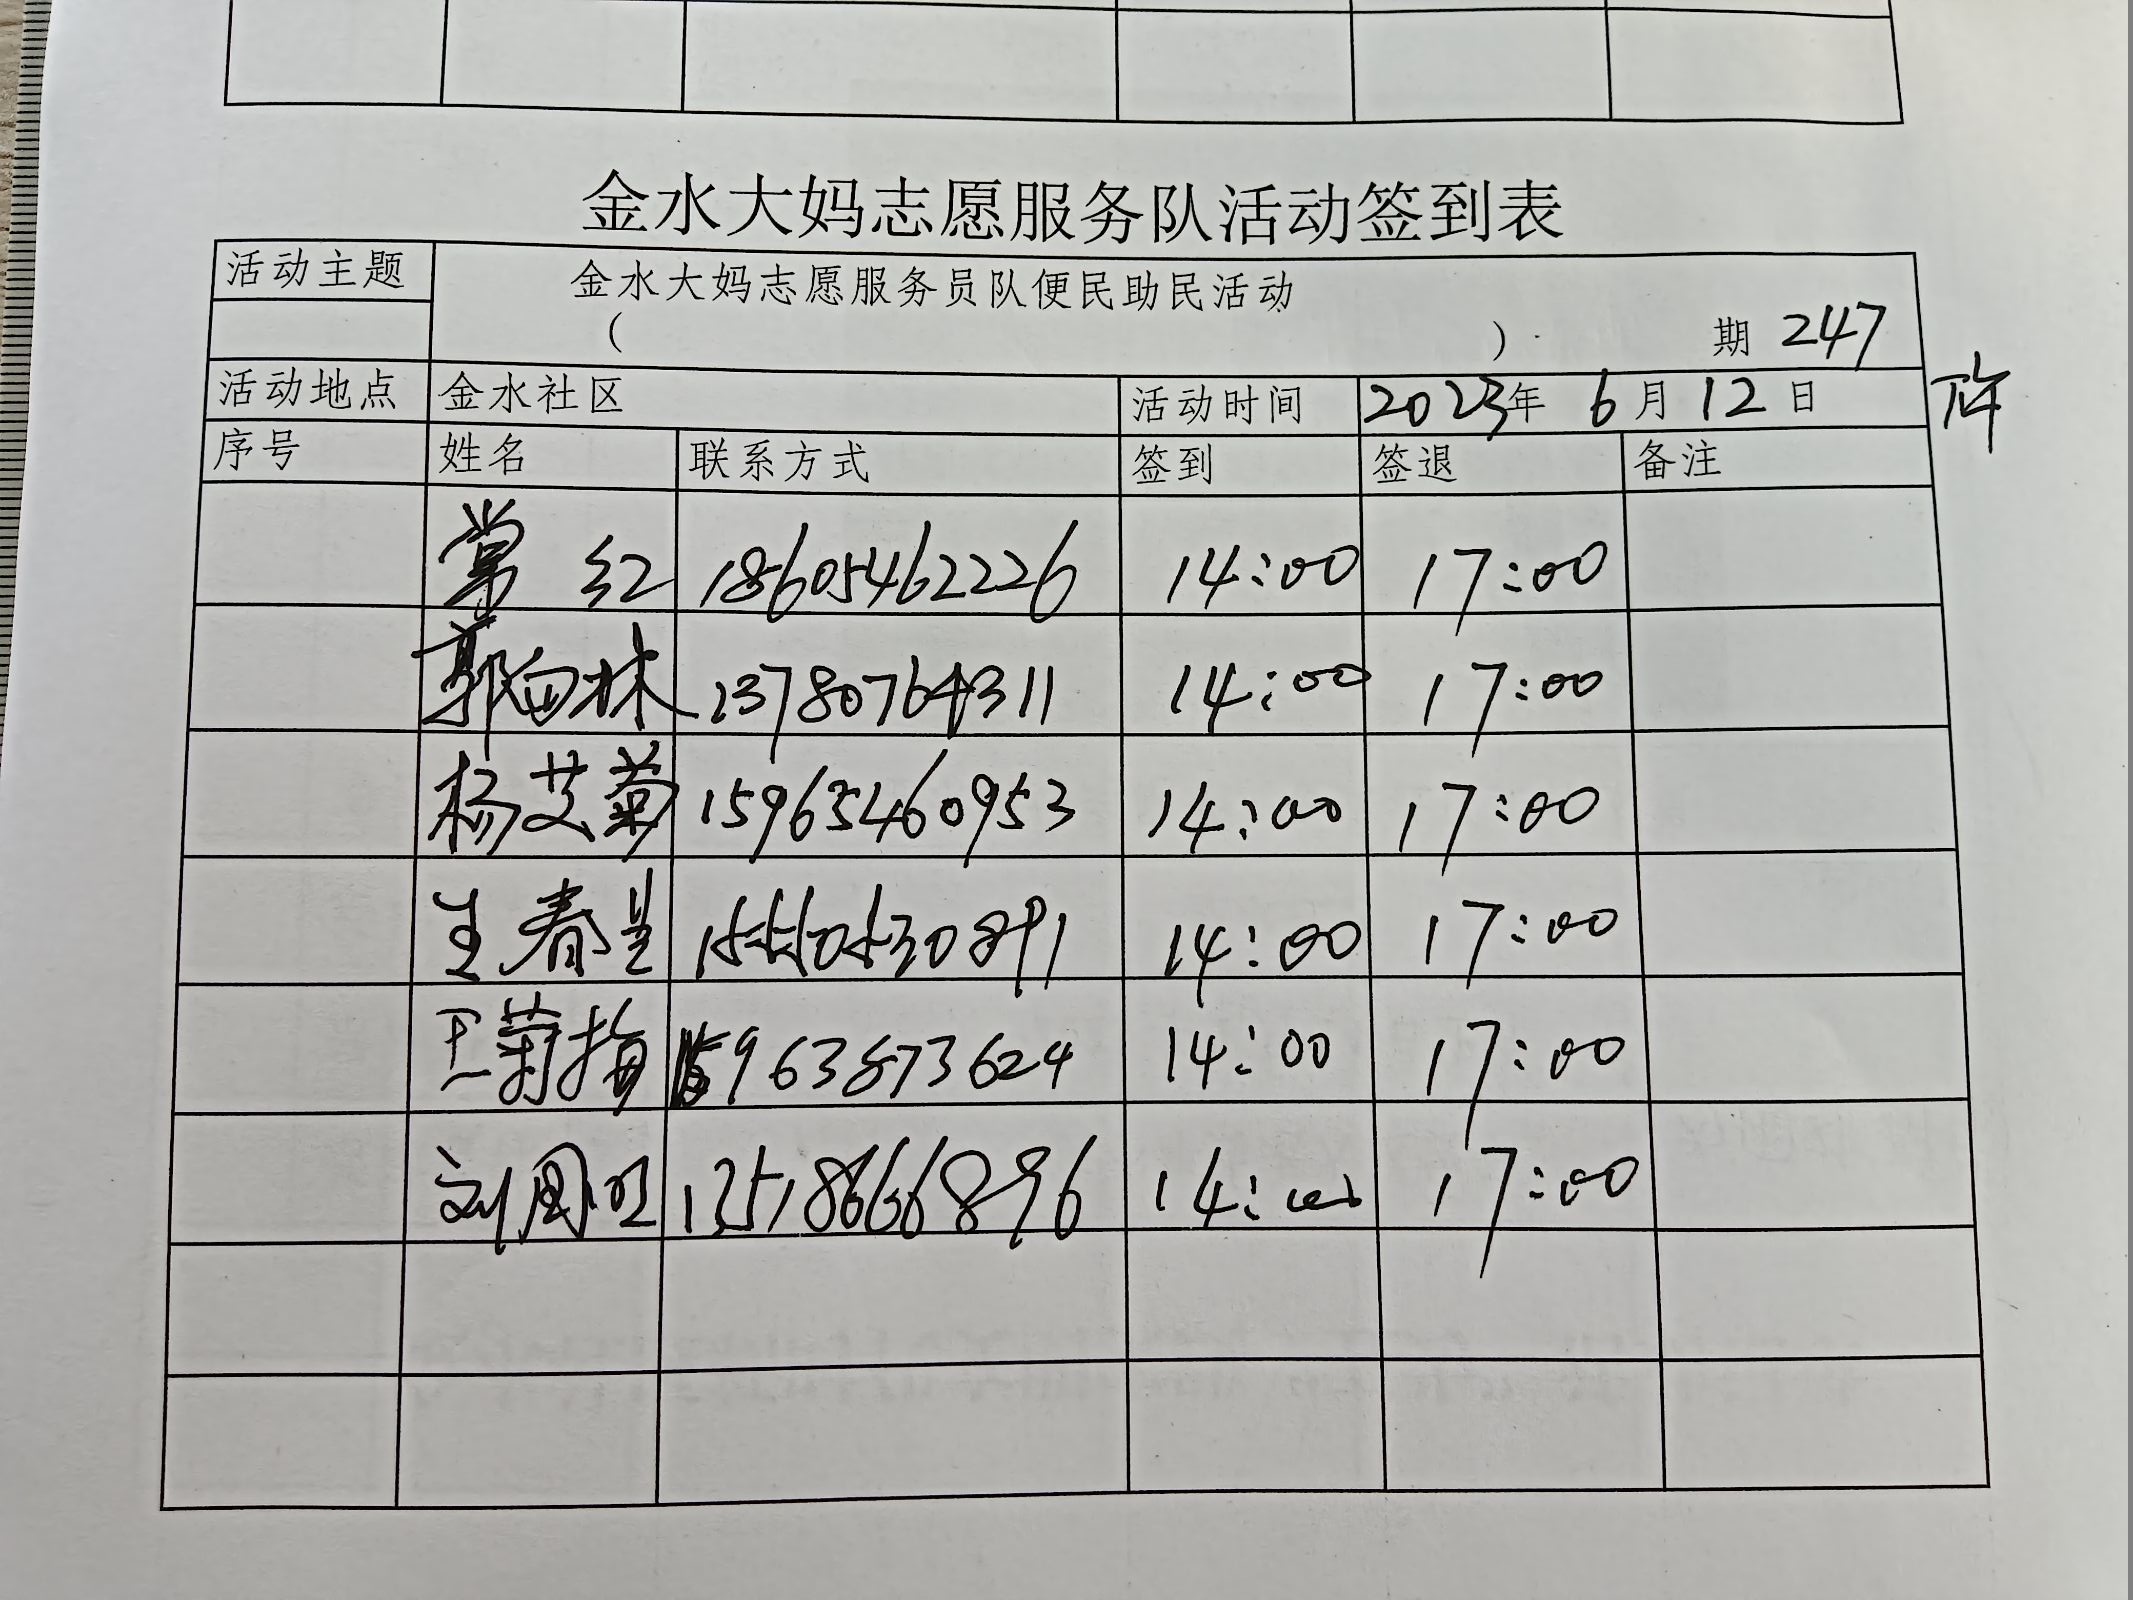 金水大妈志愿服务队活动签到表
活动主题 金水大妈志愿服务员队便民助民活动
( ) 期 247
活动地点 金水社区 活动时间 2023年 6月12日 下午
序号 姓名 联系方式 签到 签退 备注
常红 18605462226 14:00 17:00
郭向林 13780764311 14:00 17:00
杨艾菊 15965460953 14:00 17:00
王春 15550530891 14:00 17:00
王菊梅 15963873624 14:00 17:00
刘国 14:00 17:00